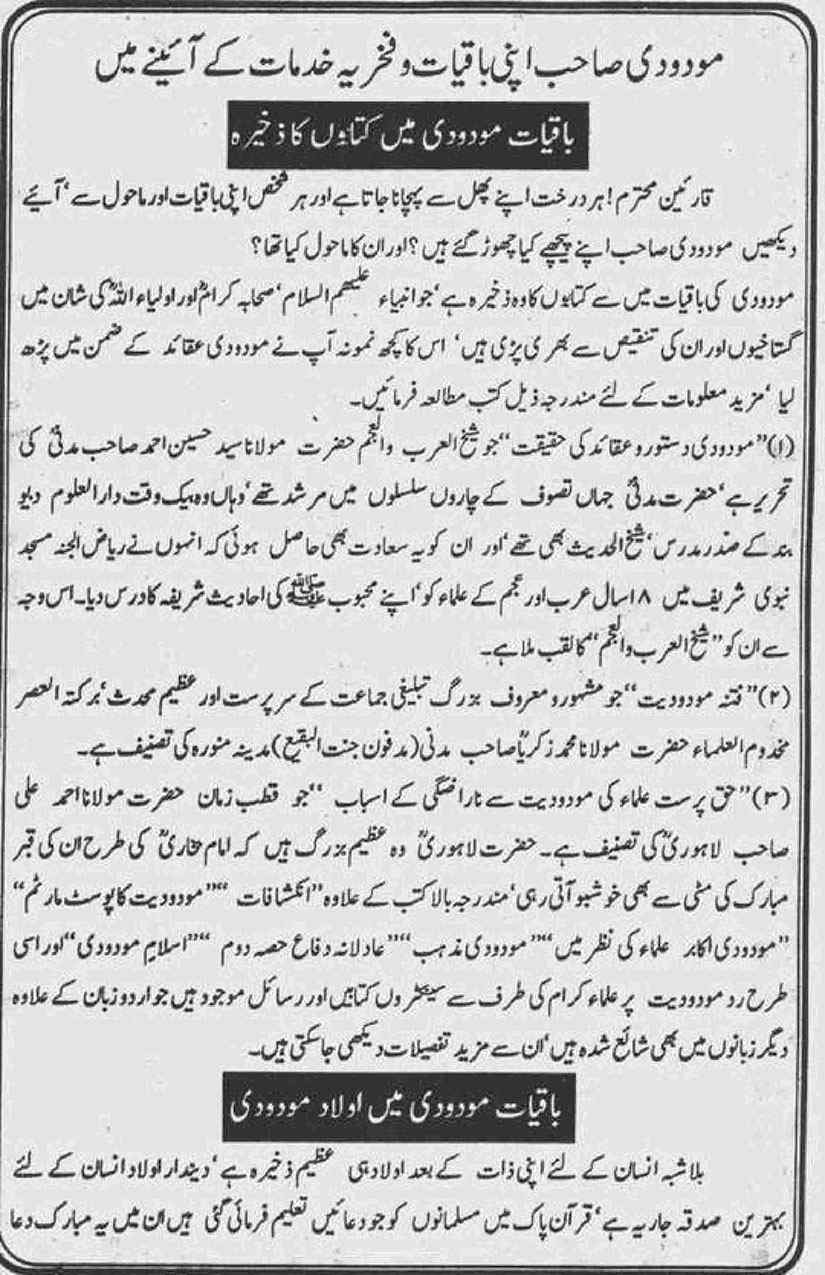 مودودی صاحب اپنی باقیات و فخریہ خدمات کے آئینے میں
باقیات مودودی میں کتابوں کا ذخیرہ
قارئین محترم! ہر درخت اپنے پھل سے پہچانا جاتا ہے اور ہر شخص اپنی باقیات اور ماحول سے‘ آئیے
دیکھیں مودودی صاحب اپنے پیچھے کیا چھوڑ گئے ہیں؟ اور ان کا ماحول کیا تھا؟
مودودی کی باقیات میں سے کتابوں کا وہ ذخیرہ ہے‘ جو انبیاء علیھم السلام‘ صحابہ کرامؓ اور اولیاء اللہؒ کی شان میں
گستاخیوں اور ان کی تنقیص سے بھری پڑی ہیں‘ اس کا کچھ نمونہ آپ نے مودودی عقائد کے ضمن میں پڑھ
لیا‘ مزید معلومات کے لئے مندرجہ ذیل کتب مطالعہ فرمائیں۔
(۱)’’مودودی دستور و عقائد کی حقیقت‘‘ جو شیخ العرب والعجم حضرت مولانا سید حسین احمد صاحب مدنیؒ کی
تحریر ہے‘ حضرت مدنیؒ جہاں تصوف کے چاروں سلسلوں میں مرشد تھے‘ وہاں وہ بیک وقت دارالعلوم دیو
بند کے صدر مدرس‘ شیخ الحدیث بھی تھے‘ اور ان کو یہ سعادت بھی حاصل ہوئی کہ انہوں نے ریاض الجنہ مسجد
نبوی شریف میں ۱۸ سال عرب اور عجم کے علماء کو‘ اپنے محبوب ﷺ کی احادیث شریفہ کا درس دیا۔ اس وجہ
سے ان کو ’’شیخ العرب والعجم‘‘ کا لقب ملا ہے۔
(۲)’’فتنہ مودودیت‘‘ جو مشہور و معروف بزرگ تبلیغی جماعت کے سرپرست اور عظیم محدث‘ برکتہ العصر
مخدوم العلماء حضرت مولانا محمد زکریاؒ صاحب مدنی (مدفون جنت البقیع) مدینہ منورہ کی تصنیف ہے۔
(۳)’’حق پرست علماء کی مودودیت سے ناراضگی کے اسباب‘‘ جو قطب زمان حضرت مولانا احمد علی
صاحب لاہوریؒ کی تصنیف ہے۔ حضرت لاہوریؒ وہ عظیم بزرگ ہیں کہ امام بخاریؒ کی طرح ان کی قبر
مبارک کی مٹی سے بھی خوشبو آتی رہی‘ مندرجہ بالا کتب کے علاوہ ’’انکشافات‘‘ ’’مودودیت کا پوسٹ مارٹم‘‘
’’مودودی اکابر علماء کی نظر میں‘‘ ’’مودودی مذہب‘‘ ’’عادلانہ دفاع حصہ دوم‘‘ ’’اسلامِ مودودی‘‘ اور اسی
طرح رد مودودیت پر علماء کرام کی طرف سے سینکڑوں کتابیں اور رسائل موجود ہیں جو اردو زبان کے علاوہ
دیگر زبانوں میں بھی شائع شدہ ہیں‘ ان سے مزید تفصیلات دیکھی جا سکتی ہیں۔
باقیات مودودی میں اولاد مودودی
بلاشبہ انسان کے لئے اپنی ذات کے بعد اولاد ہی عظیم ذخیرہ ہے‘ دیندار اولاد انسان کے لئے
بہترین صدقہ جاریہ ہے‘ قرآن پاک میں مسلمانوں کو جو دعائیں تعلیم فرمائی گئی ہیں ان میں یہ مبارک دعا